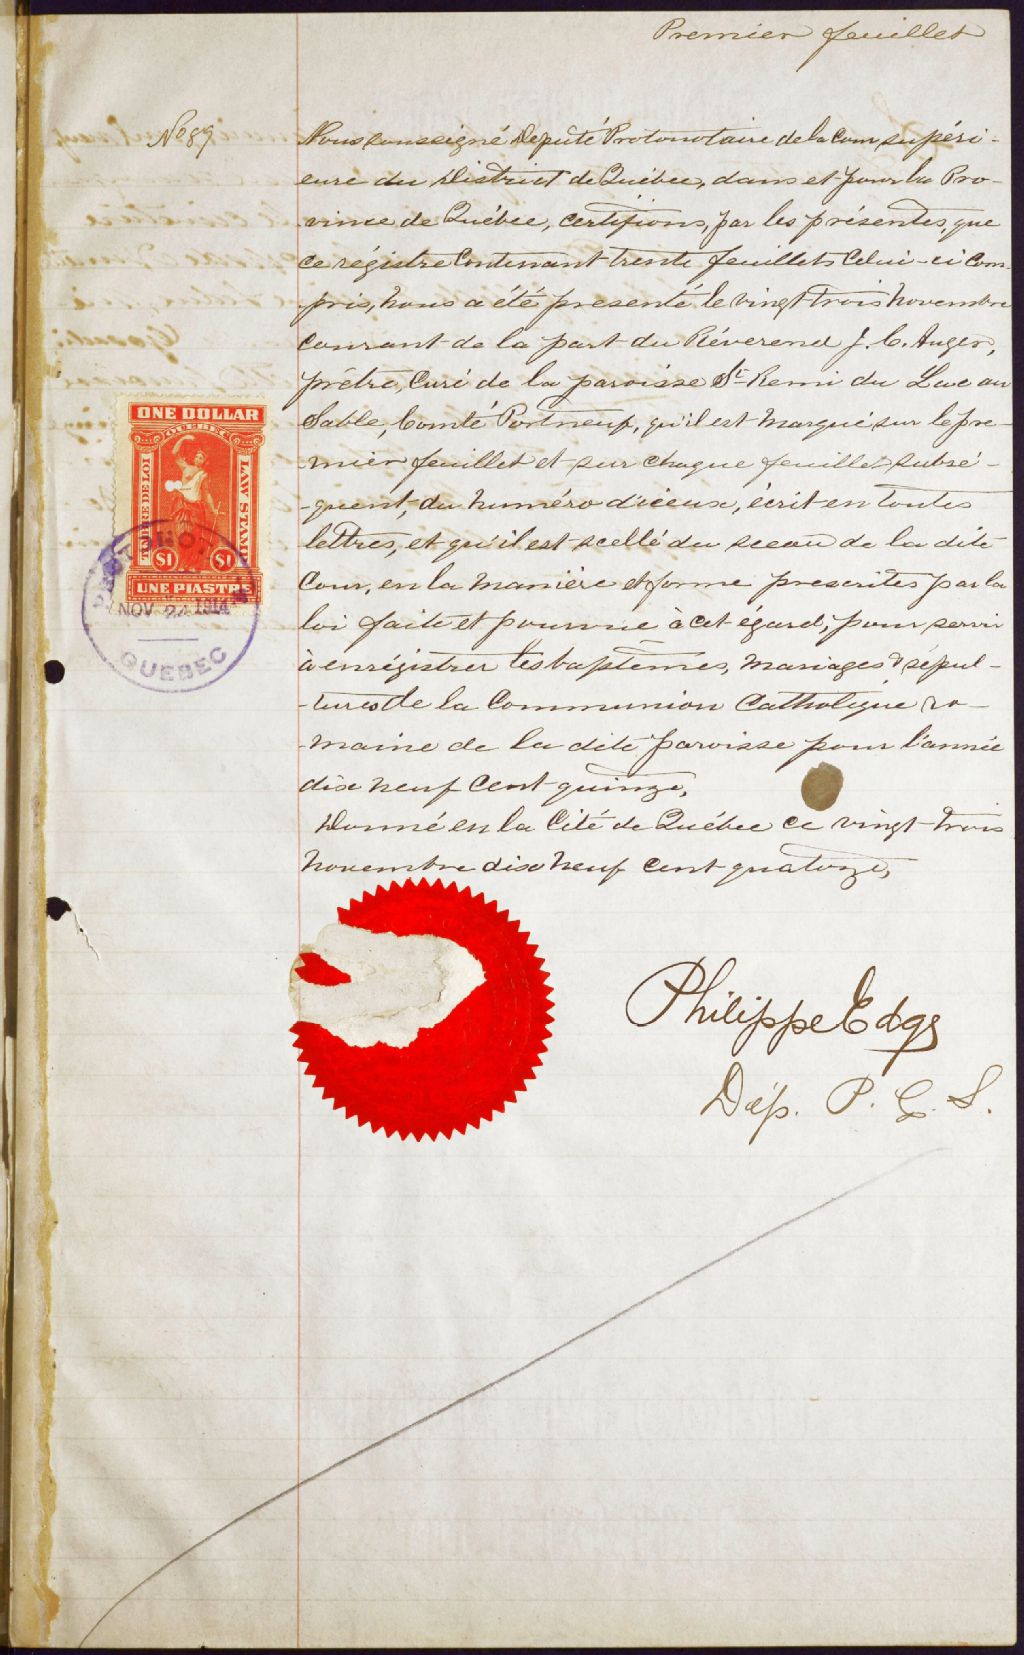 Premier feuillet
No 89
Nous soussigné Député Protonotaire de la Cour supéri-
eure du District de Québec, dans et pour la Pro-
vince de Québec, certifions, par les présentes, que
ce régistre contenant trente feuillets celui-ci com-
pris, nous a été présenté le vingt trois novembre
courant de la part du Révérend J. C. Auger,
prêtre, curé de la paroisse St Remi du Lac au
Sable, Comté Portneuf, qu'il est marqué sur le pre-
mier feuillet et sur chaque feuillet subsé-
-quent, du numéro d'iceux, écrit en toutes
lettres, et qu'il est scellé du sceau de la dite
Cour, en la manière et forme prescrites par la
loi faite et pourvue à cet égard, pour servir
à enrégistrer les baptêmes, mariages & sépul-
-tures de la Communion Catholique ro-
-maine de la dite paroisse pour l'année
dix neuf cent quinze,
Donné en la Cité de Québec ce vingt-trois
novembre dix neuf cent quatorze,
ONE DOLLAR
QUEBEC
TIMBRE DE LOI
LAW STAMP
$1 $1
UNE PIASTRE
PROT. HO.
NOV 24 1914
QUEBEC
Philippe Edge
Dép. P. C. S.